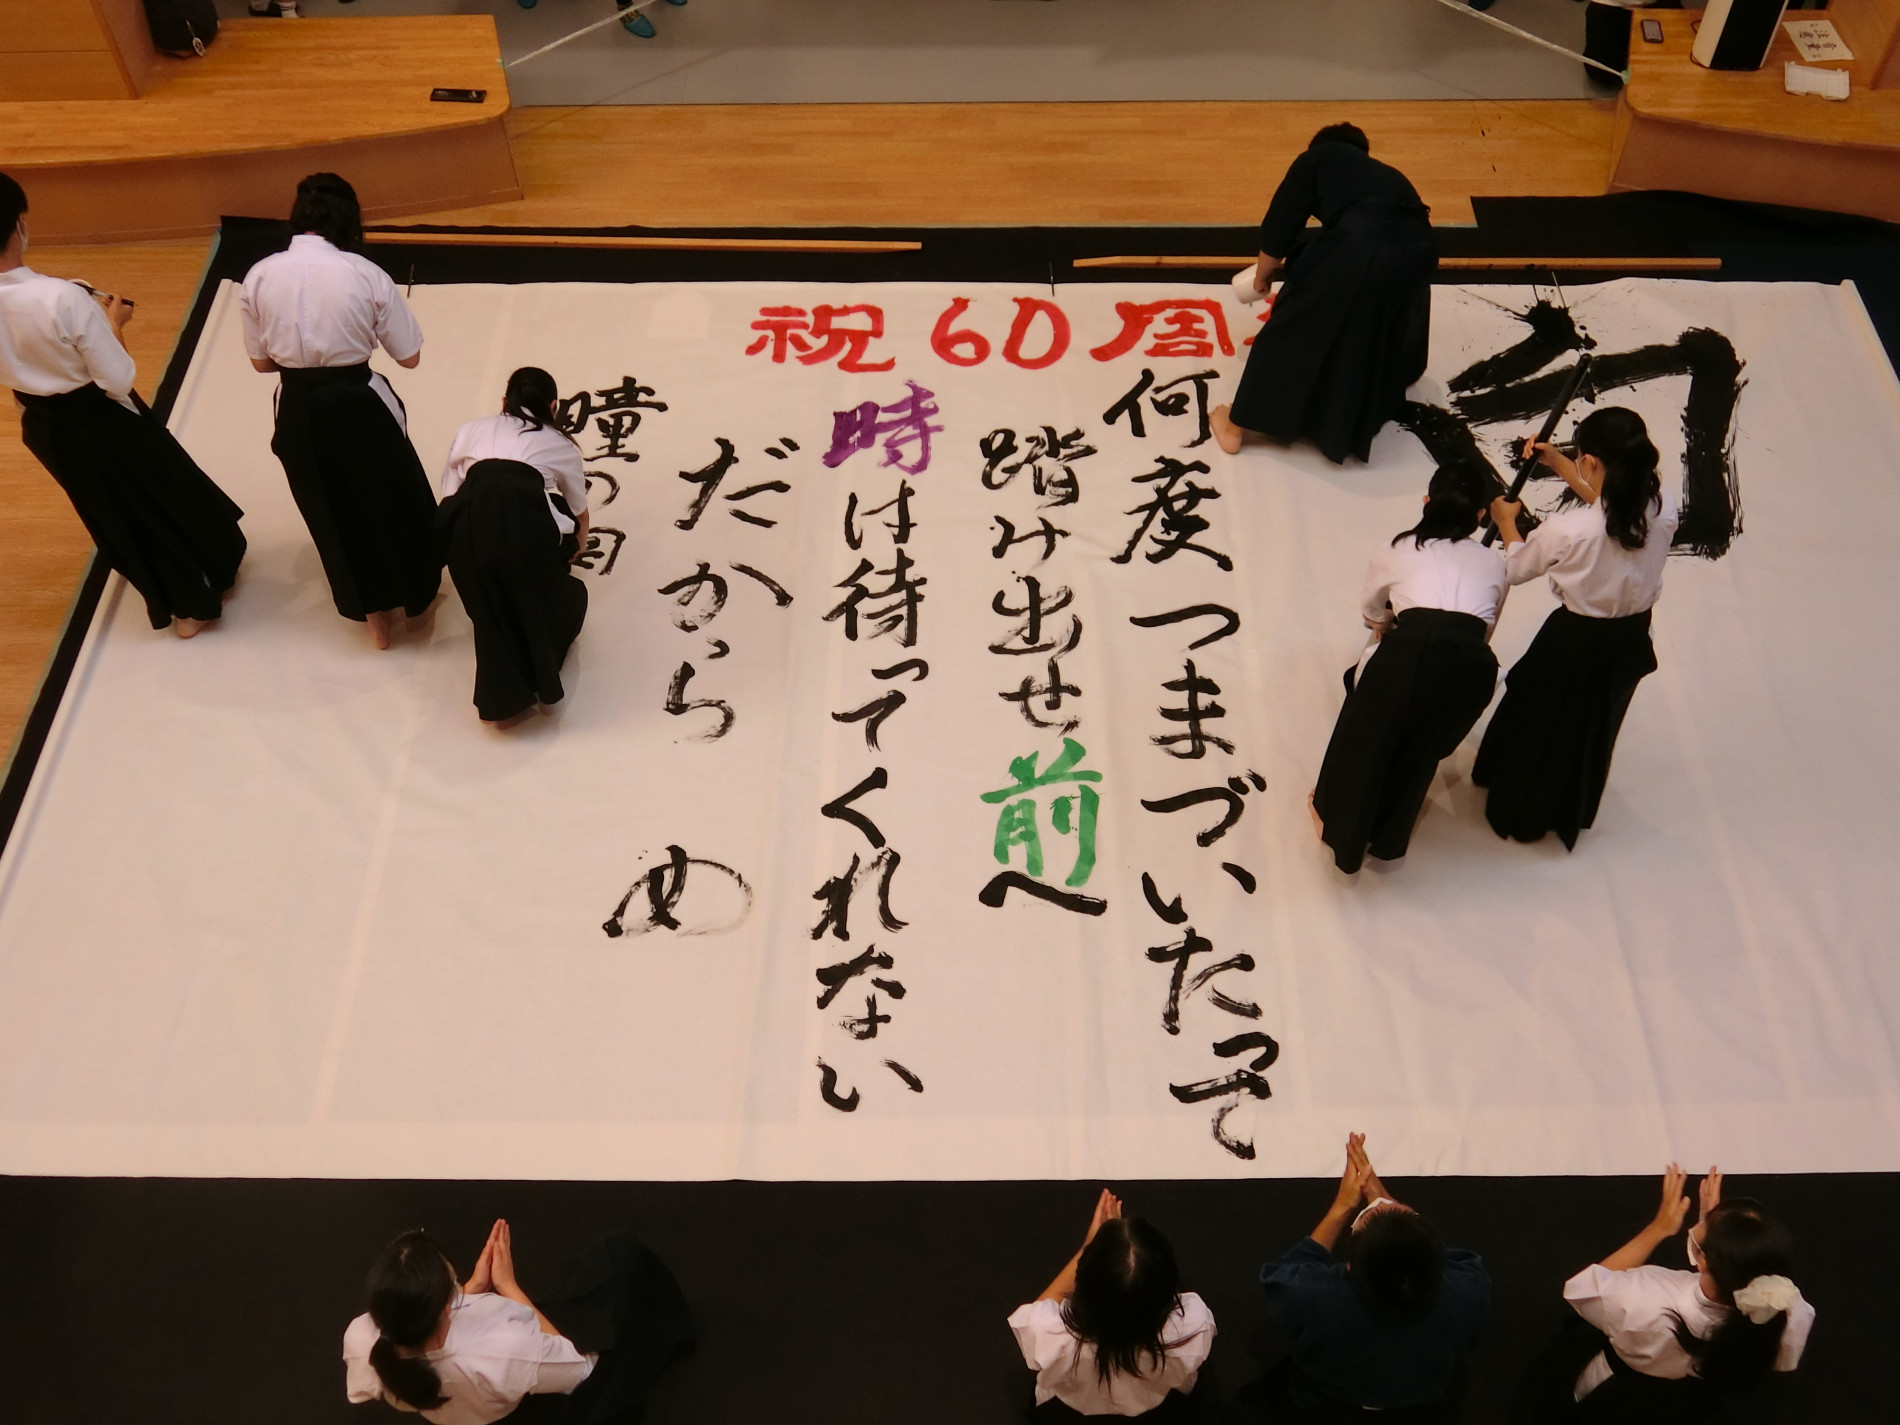 祝60周
何度つまづいたって
踏み出せ前へ
時は待ってくれない
だからめ
瞳の